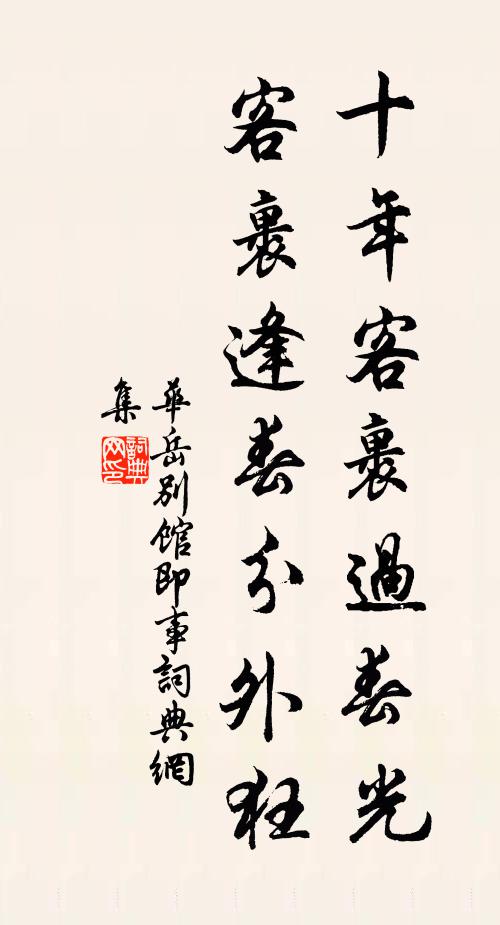 十年客裏過春光
客裏逢春分外狂
華岳別館即事詞典網
集
詞典網印